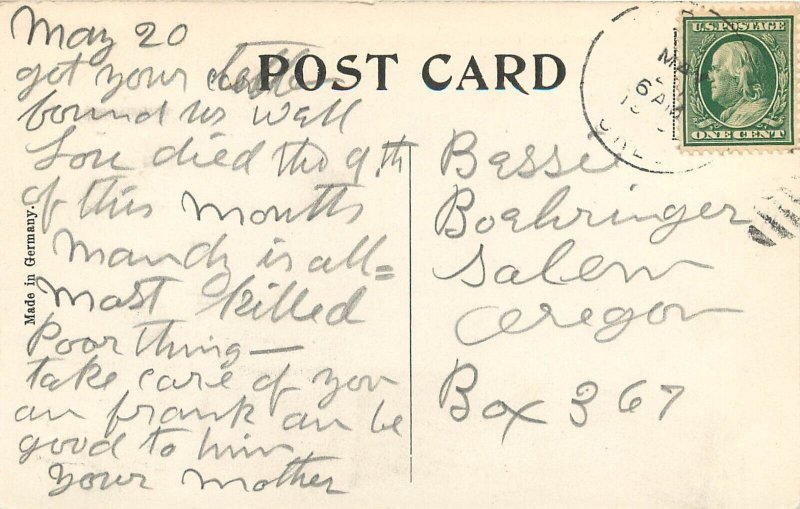 May 20
got your
POST CARD
found us well
Lou died the 9.th
of this Month
Mandy is all=
most killed
Poor thing—
take care of you
an frank an be
good to him
your Mother
Made in Germany.
Bessie
Boehringer
Salem
Oregon
Box 367
U.S. POSTAGE
ONE CENT
MAY
6 AM
ORE